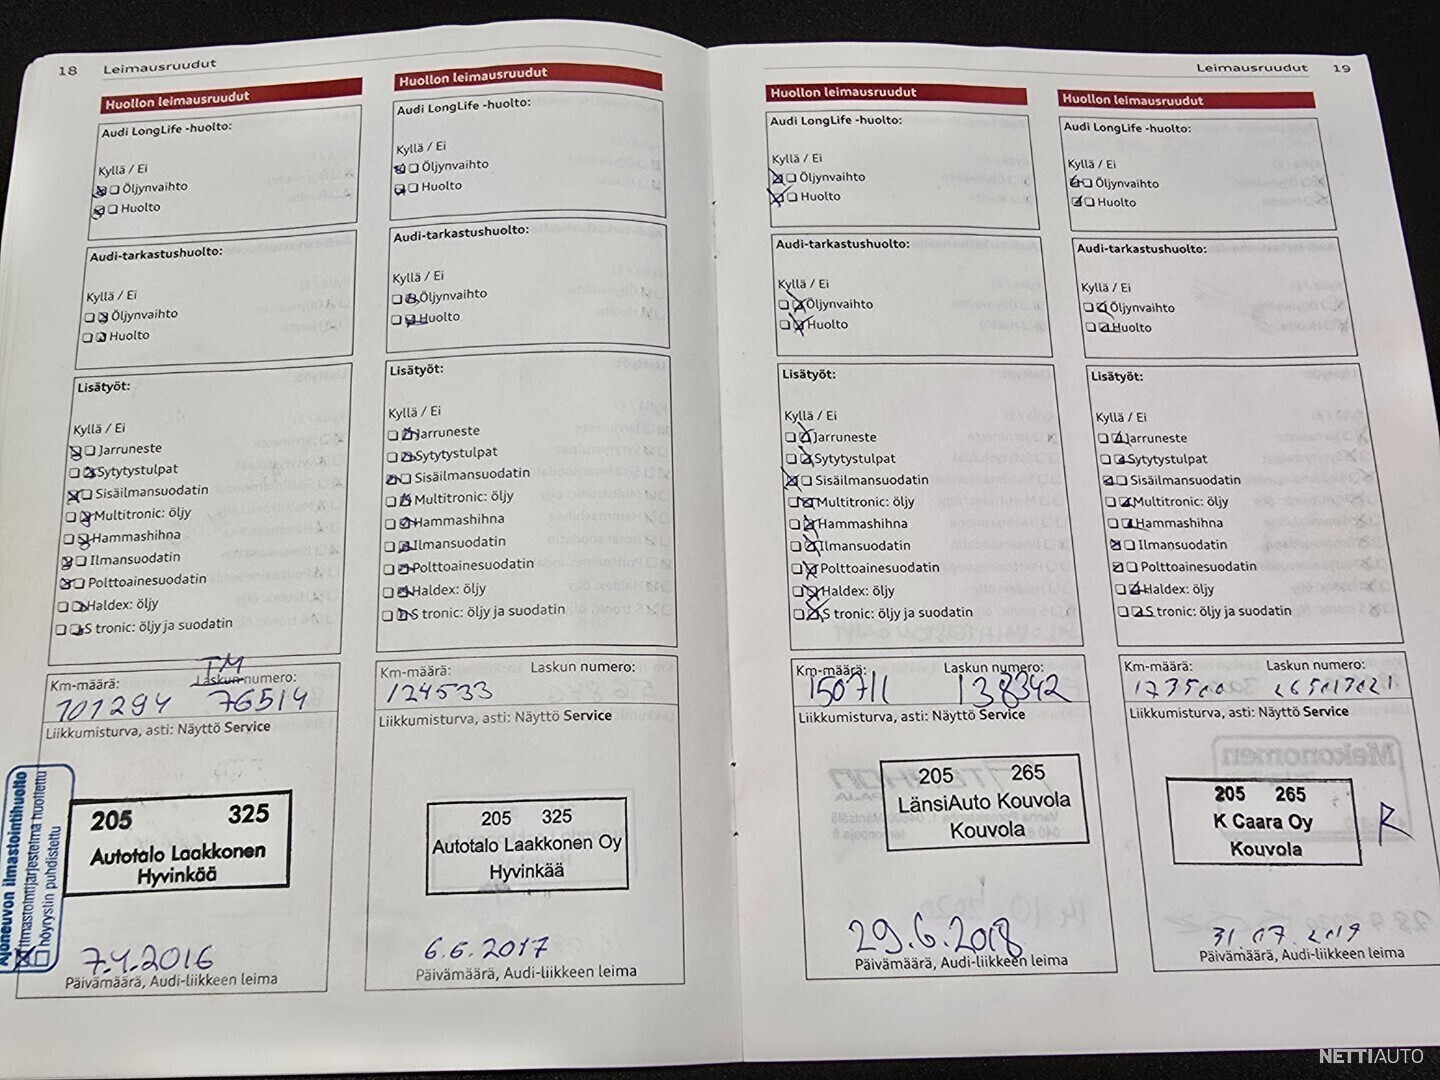 18 Leimausruudut
Huollon leimausruudut
Audi LongLife -huolto:
Kyllä / Ei
Öljynvaihto
Huolto
Audi-tarkastushuolto:
Kyllä / Ei
Öljynvaihto
Huolto
Lisätyöt:
Kyllä / Ei
Jarruneste
Sytytystulpat
Sisäilmansuodatin
Multitronic: öljy
Hammashihna
Ilmansuodatin
Polttoainesuodatin
Haldex: öljy
S tronic: öljy ja suodatin
TM
Km-määrä: Laskun numero:
101294 76514
Liikkumisturva, asti: Näyttö Service
205 325
Autotalo Laakkonen
Hyvinkää
Ajoneuvon ilmastointihuolto
Ilmastointijärjestelmä huollettu
höyrystin puhdistettu
7.4.2016
Päivämäärä, Audi-liikkeen leima
Huollon leimausruudut
Audi LongLife -huolto:
Kyllä / Ei
Öljynvaihto
Huolto
Audi-tarkastushuolto:
Kyllä / Ei
Öljynvaihto
Huolto
Lisätyöt:
Kyllä / Ei
Jarruneste
Sytytystulpat
Sisäilmansuodatin
Multitronic: öljy
Hammashihna
Ilmansuodatin
Polttoainesuodatin
Haldex: öljy
S tronic: öljy ja suodatin
Km-määrä: Laskun numero:
124533
Liikkumisturva, asti: Näyttö Service
205 325
Autotalo Laakkonen Oy
Hyvinkää
6.6.2017
Päivämäärä, Audi-liikkeen leima
Leimausruudut 19
Huollon leimausruudut
Audi LongLife -huolto:
Kyllä / Ei
Öljynvaihto
Huolto
Audi-tarkastushuolto:
Kyllä / Ei
Öljynvaihto
Huolto
Lisätyöt:
Kyllä / Ei
Jarruneste
Sytytystulpat
Sisäilmansuodatin
Multitronic: öljy
Hammashihna
Ilmansuodatin
Polttoainesuodatin
Haldex: öljy
S tronic: öljy ja suodatin
Km-määrä: Laskun numero:
150711 138342
Liikkumisturva, asti: Näyttö Service
205 265
LänsiAuto Kouvola
Kouvola
29.6.2018
Päivämäärä, Audi-liikkeen leima
Huollon leimausruudut
Audi LongLife -huolto:
Kyllä / Ei
Öljynvaihto
Huolto
Audi-tarkastushuolto:
Kyllä / Ei
Öljynvaihto
Huolto
Lisätyöt:
Kyllä / Ei
Jarruneste
Sytytystulpat
Sisäilmansuodatin
Multitronic: öljy
Hammashihna
Ilmansuodatin
Polttoainesuodatin
Haldex: öljy
S tronic: öljy ja suodatin
Km-määrä: Laskun numero:
Liikkumisturva, asti: Näyttö Service
205 265
K Caara Oy
Kouvola
R
31.07.2019
Päivämäärä, Audi-liikkeen leima
NETTIAUTO